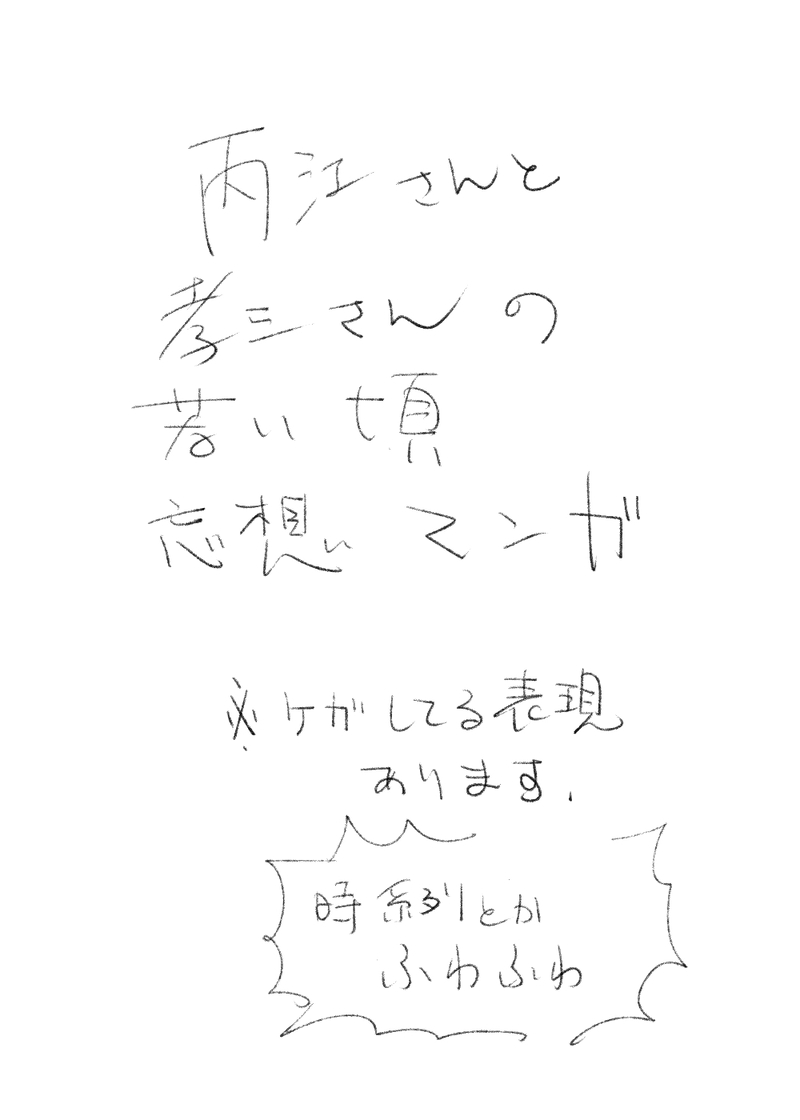 丙江さんと
孝三さんの
若い頃
忘想マンガ
※ケガしてる表現
あります.
時系列とか
ふわふわ